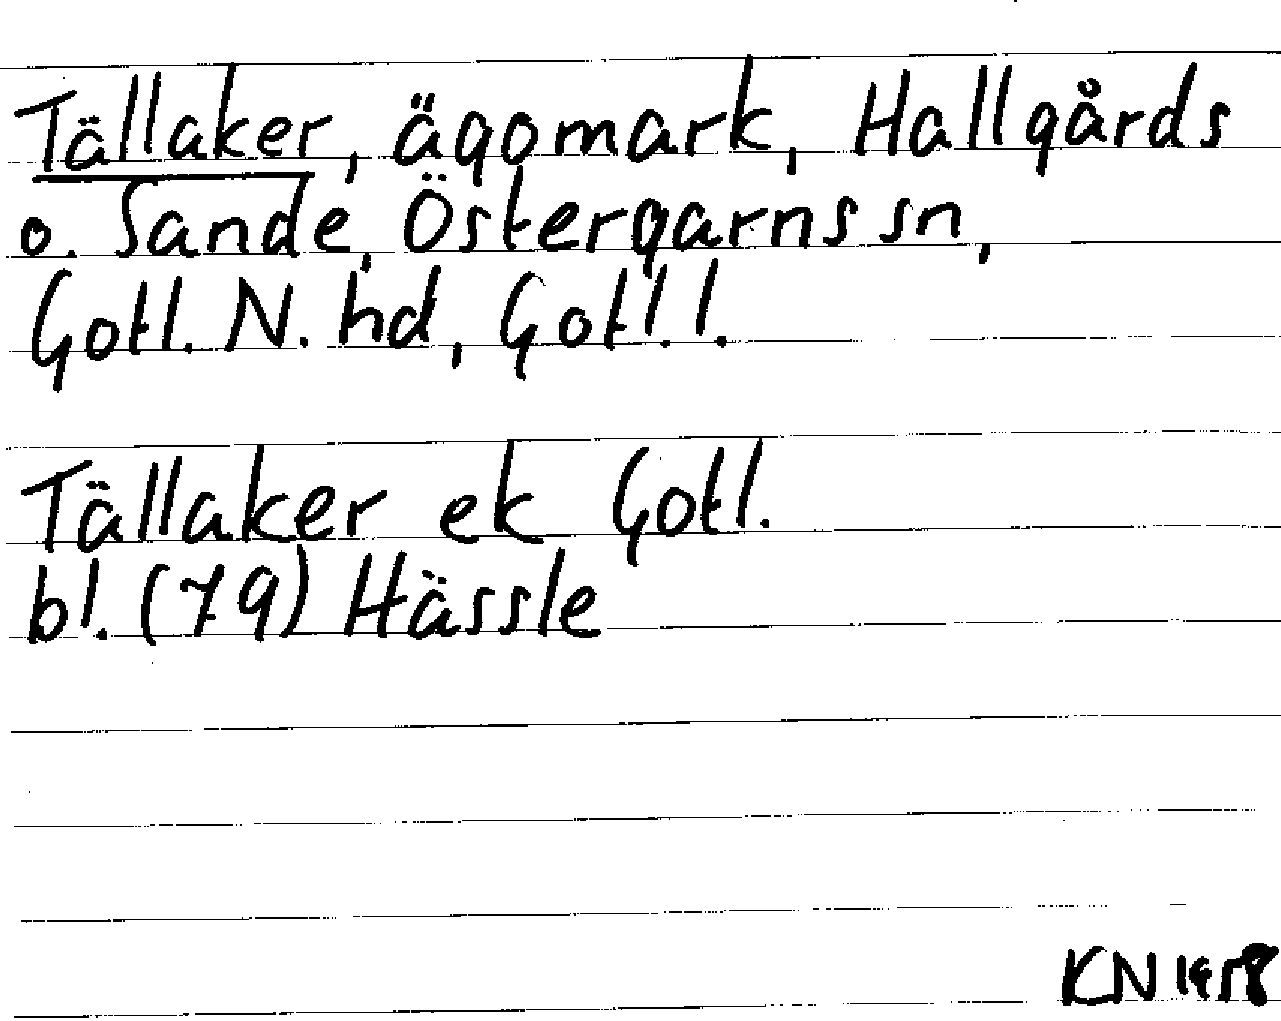 Tällaker, ägomark, Hallgårds
o. Sande, Östergarns sn,
Gotl. N. hd, Gotl. l.
Tällaker ek Gotl.
bl. (79) Hässle
KN 1958